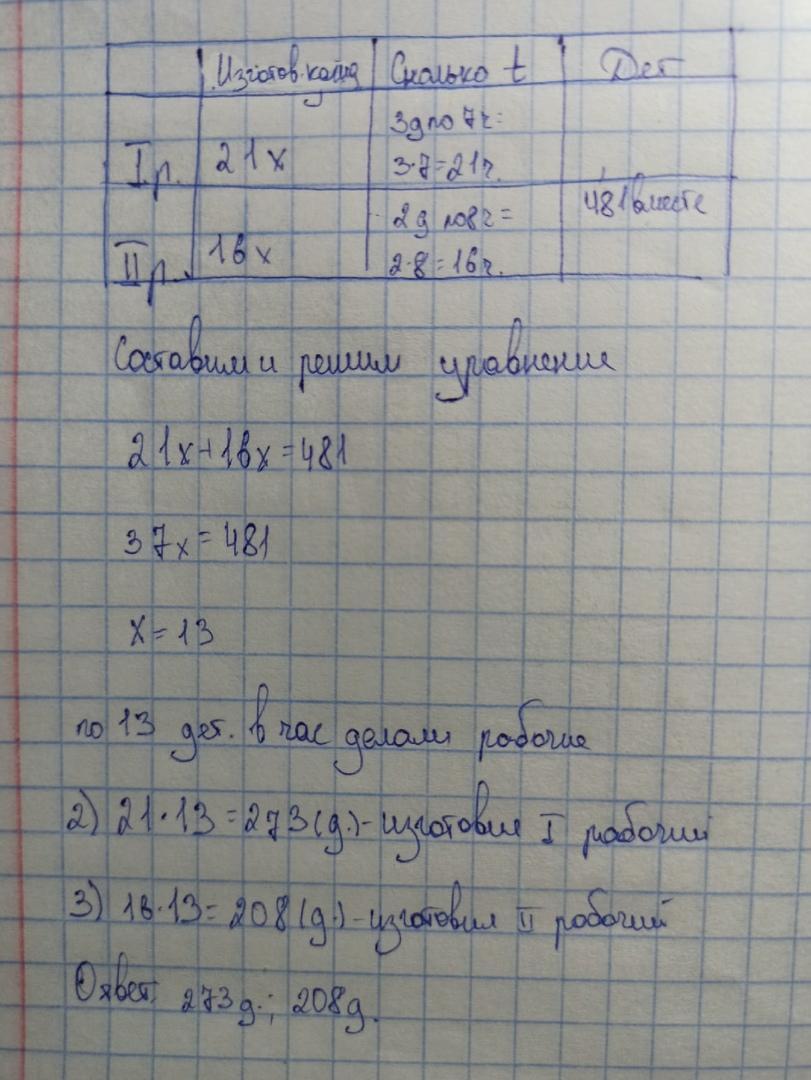 Изготов. кажд Сколько t Дет
I р. 21x 3д по 7ч=
3·7=21ч.
II р. 16x 2д по 8ч= 481 вместе
2·8=16ч.
Составим и решим уравнение
21x+16x=481
37x=481
x=13
по 13 дет. в час делали рабочие
2) 21·13=273(д.)-изготовил I рабочий
3) 16·13=208(д.)-изготовил II рабочий
Ответ: 273д.; 208д.